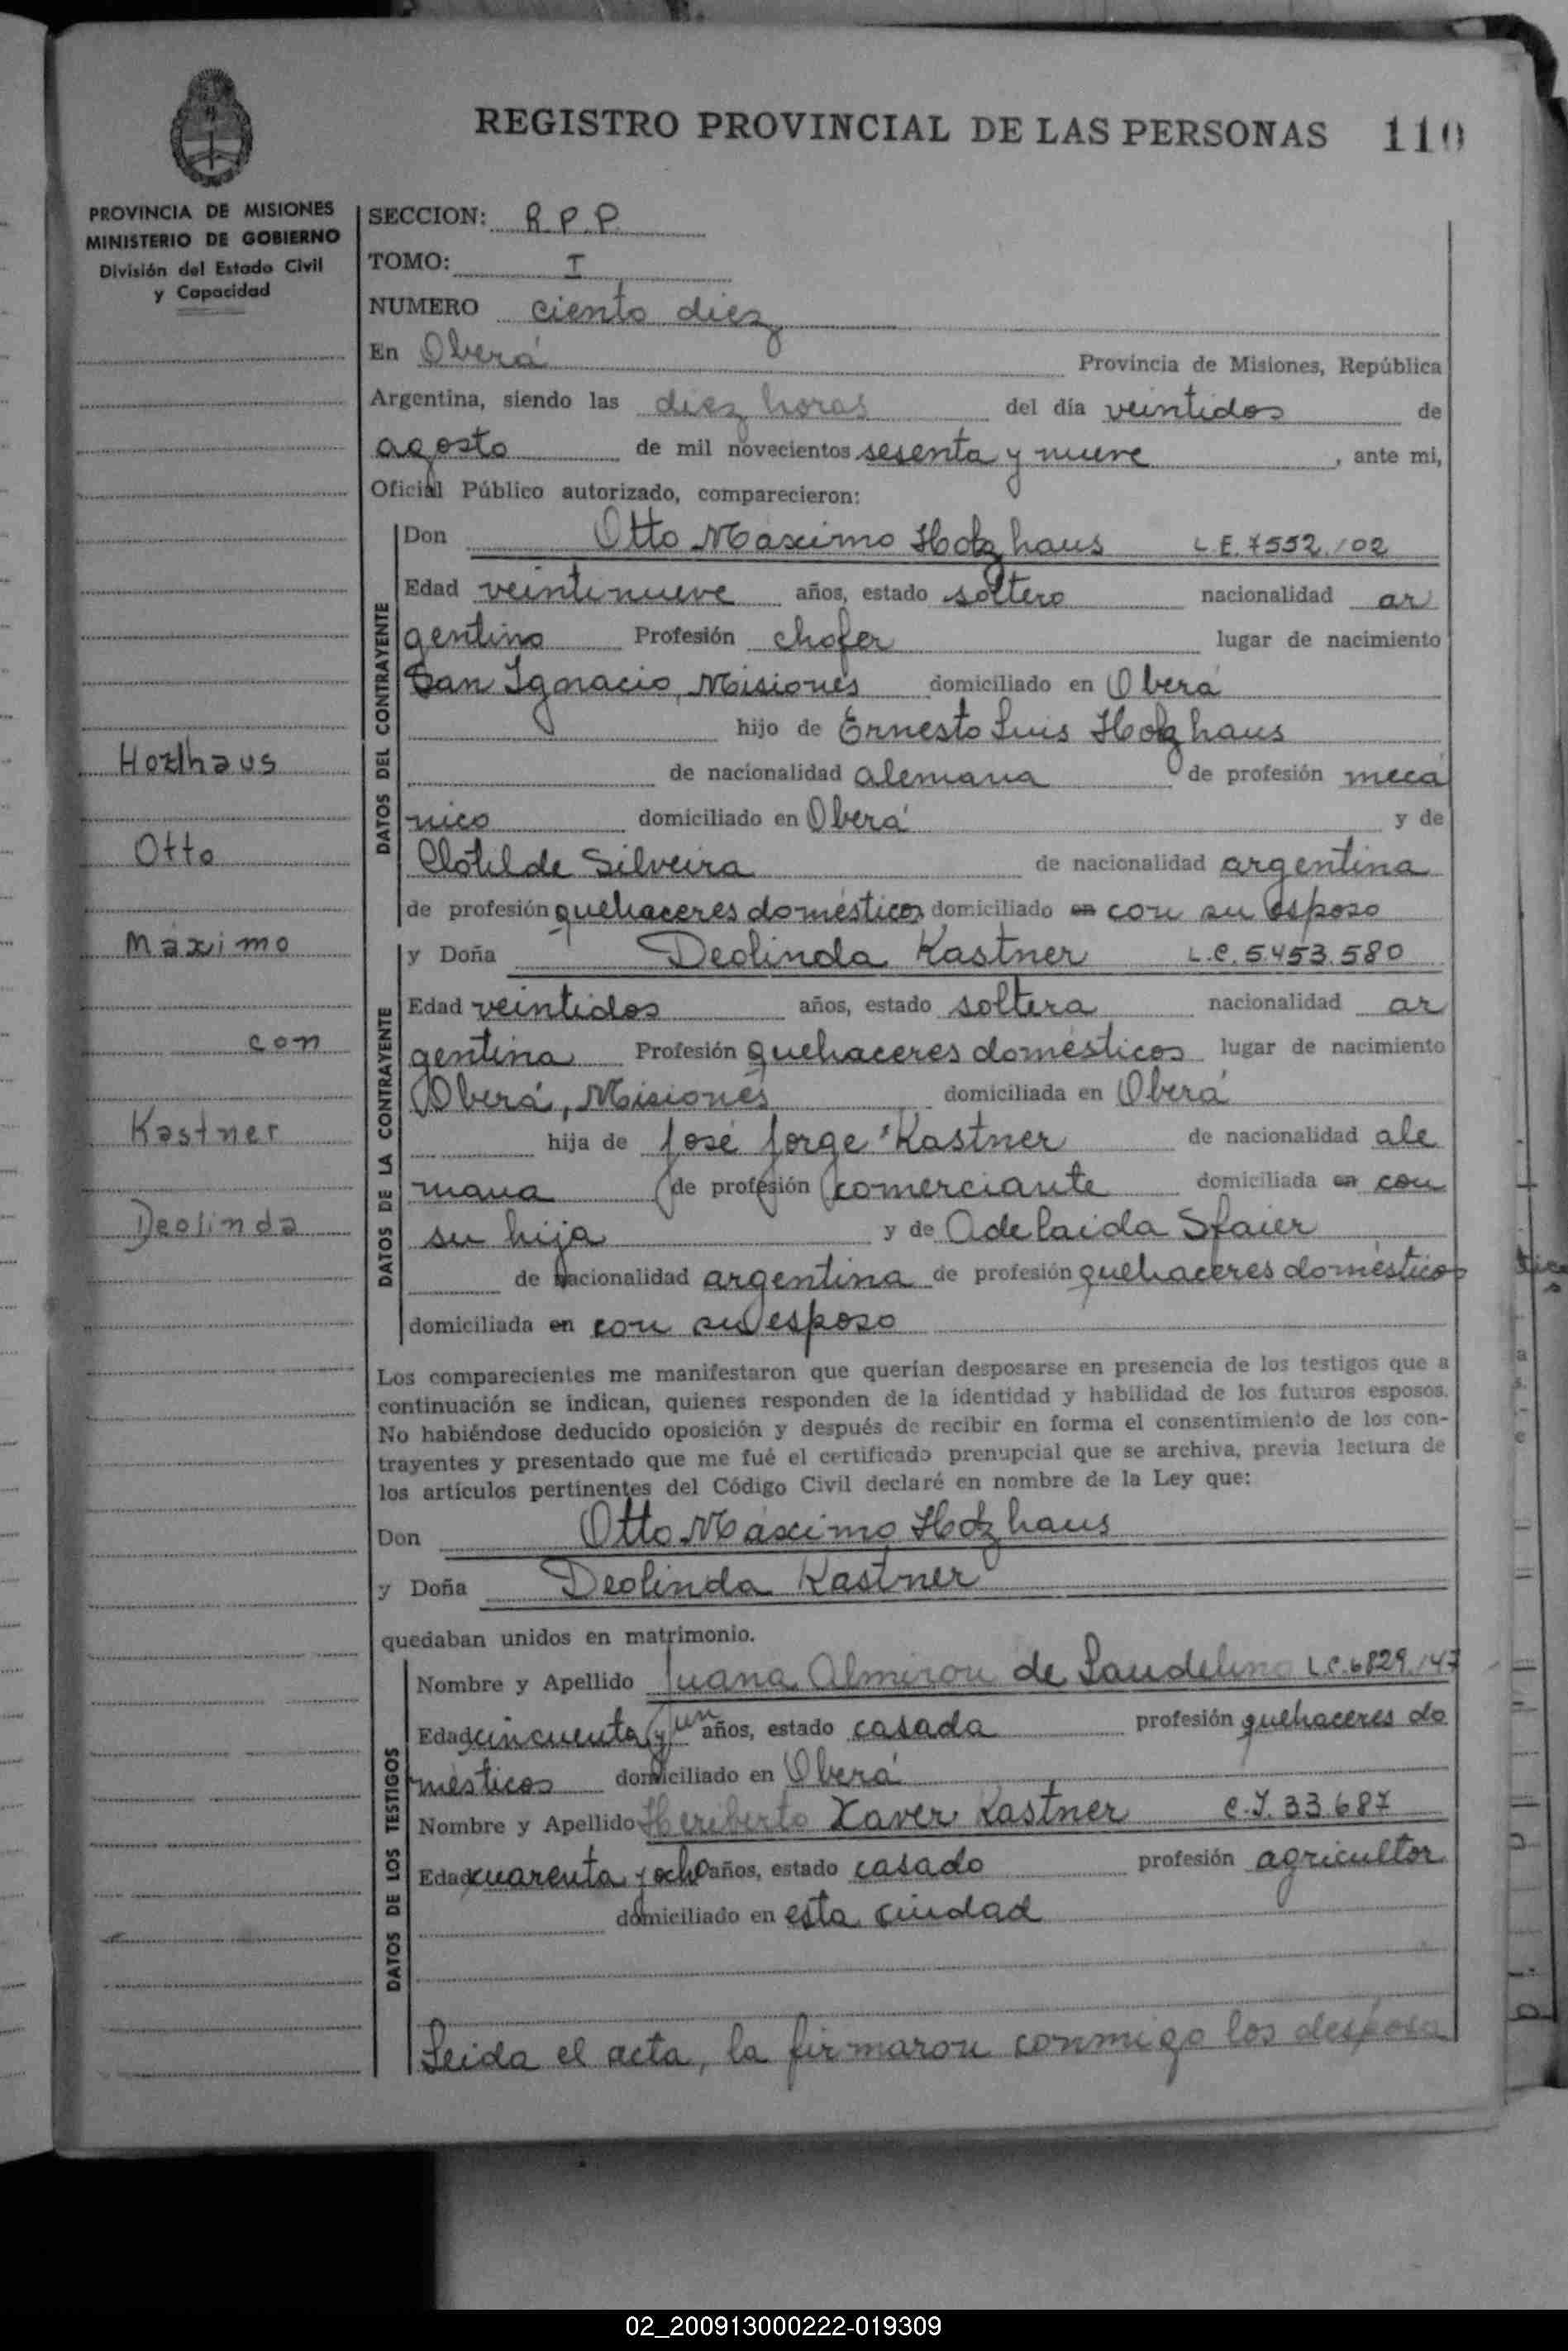 REGISTRO PROVINCIAL DE LAS PERSONAS 110
PROVINCIA DE MISIONES
MINISTERIO DE GOBIERNO
División del Estado Civil
y Capacidad
SECCION: R.P.P.
TOMO: I
NUMERO ciento diez
En Oberá Provincia de Misiones, República
Argentina, siendo las diez horas del día veintidos de
agosto de mil novecientos sesenta y nueve, ante mi,
Oficial Público autorizado, comparecieron:
DATOS DEL CONTRAYENTE
Don Otto Máximo Holzhaus L.E. 7552.102
Edad veintinueve años, estado soltero nacionalidad ar
gentino Profesión chofer lugar de nacimiento
San Ignacio, Misiones domiciliado en Oberá
hijo de Ernesto Luis Holzhaus
de nacionalidad alemana de profesión mecá
nico domiciliado en Oberá y de
Clotilde Silveira de nacionalidad argentina
de profesión quehaceres domésticos domiciliado en con su esposo
DATOS DE LA CONTRAYENTE
y Doña Deolinda Kastner L.C. 5.453.580
Edad veintidos años, estado soltera nacionalidad ar
gentina Profesión quehaceres domésticos lugar de nacimiento
Oberá, Misiones domiciliada en Oberá
hija de José Jorge Kastner de nacionalidad ale
mana de profesión comerciante domiciliada en con
su hija y de Adelaida Sfaier
de nacionalidad argentina de profesión quehaceres domésticos
domiciliada en con su esposo
Los comparecientes me manifestaron que querían desposarse en presencia de los testigos que a
continuación se indican, quienes responden de la identidad y habilidad de los futuros esposos.
No habiéndose deducido oposición y después de recibir en forma el consentimiento de los con-
trayentes y presentado que me fué el certificado prenupcial que se archiva, previa lectura de
los artículos pertinentes del Código Civil declaré en nombre de la Ley que:
Don Otto Máximo Holzhaus
y Doña Deolinda Kastner
quedaban unidos en matrimonio.
DATOS DE LOS TESTIGOS
Nombre y Apellido Juana Almiron de Laudelino L.C. 6829.147
Edad cincuenta y un años, estado casada profesión quehaceres do
mésticos domiciliado en Oberá
Nombre y Apellido Heriberto Xaver Kastner C.I. 33.687
Edad cuarenta y ocho años, estado casado profesión agricultor
domiciliado en esta ciudad
Leida el acta, la firmaron conmigo los desposa
Hozlhaus
Otto
Máximo
con
Kastner
Deolinda
02_200913000222-019309